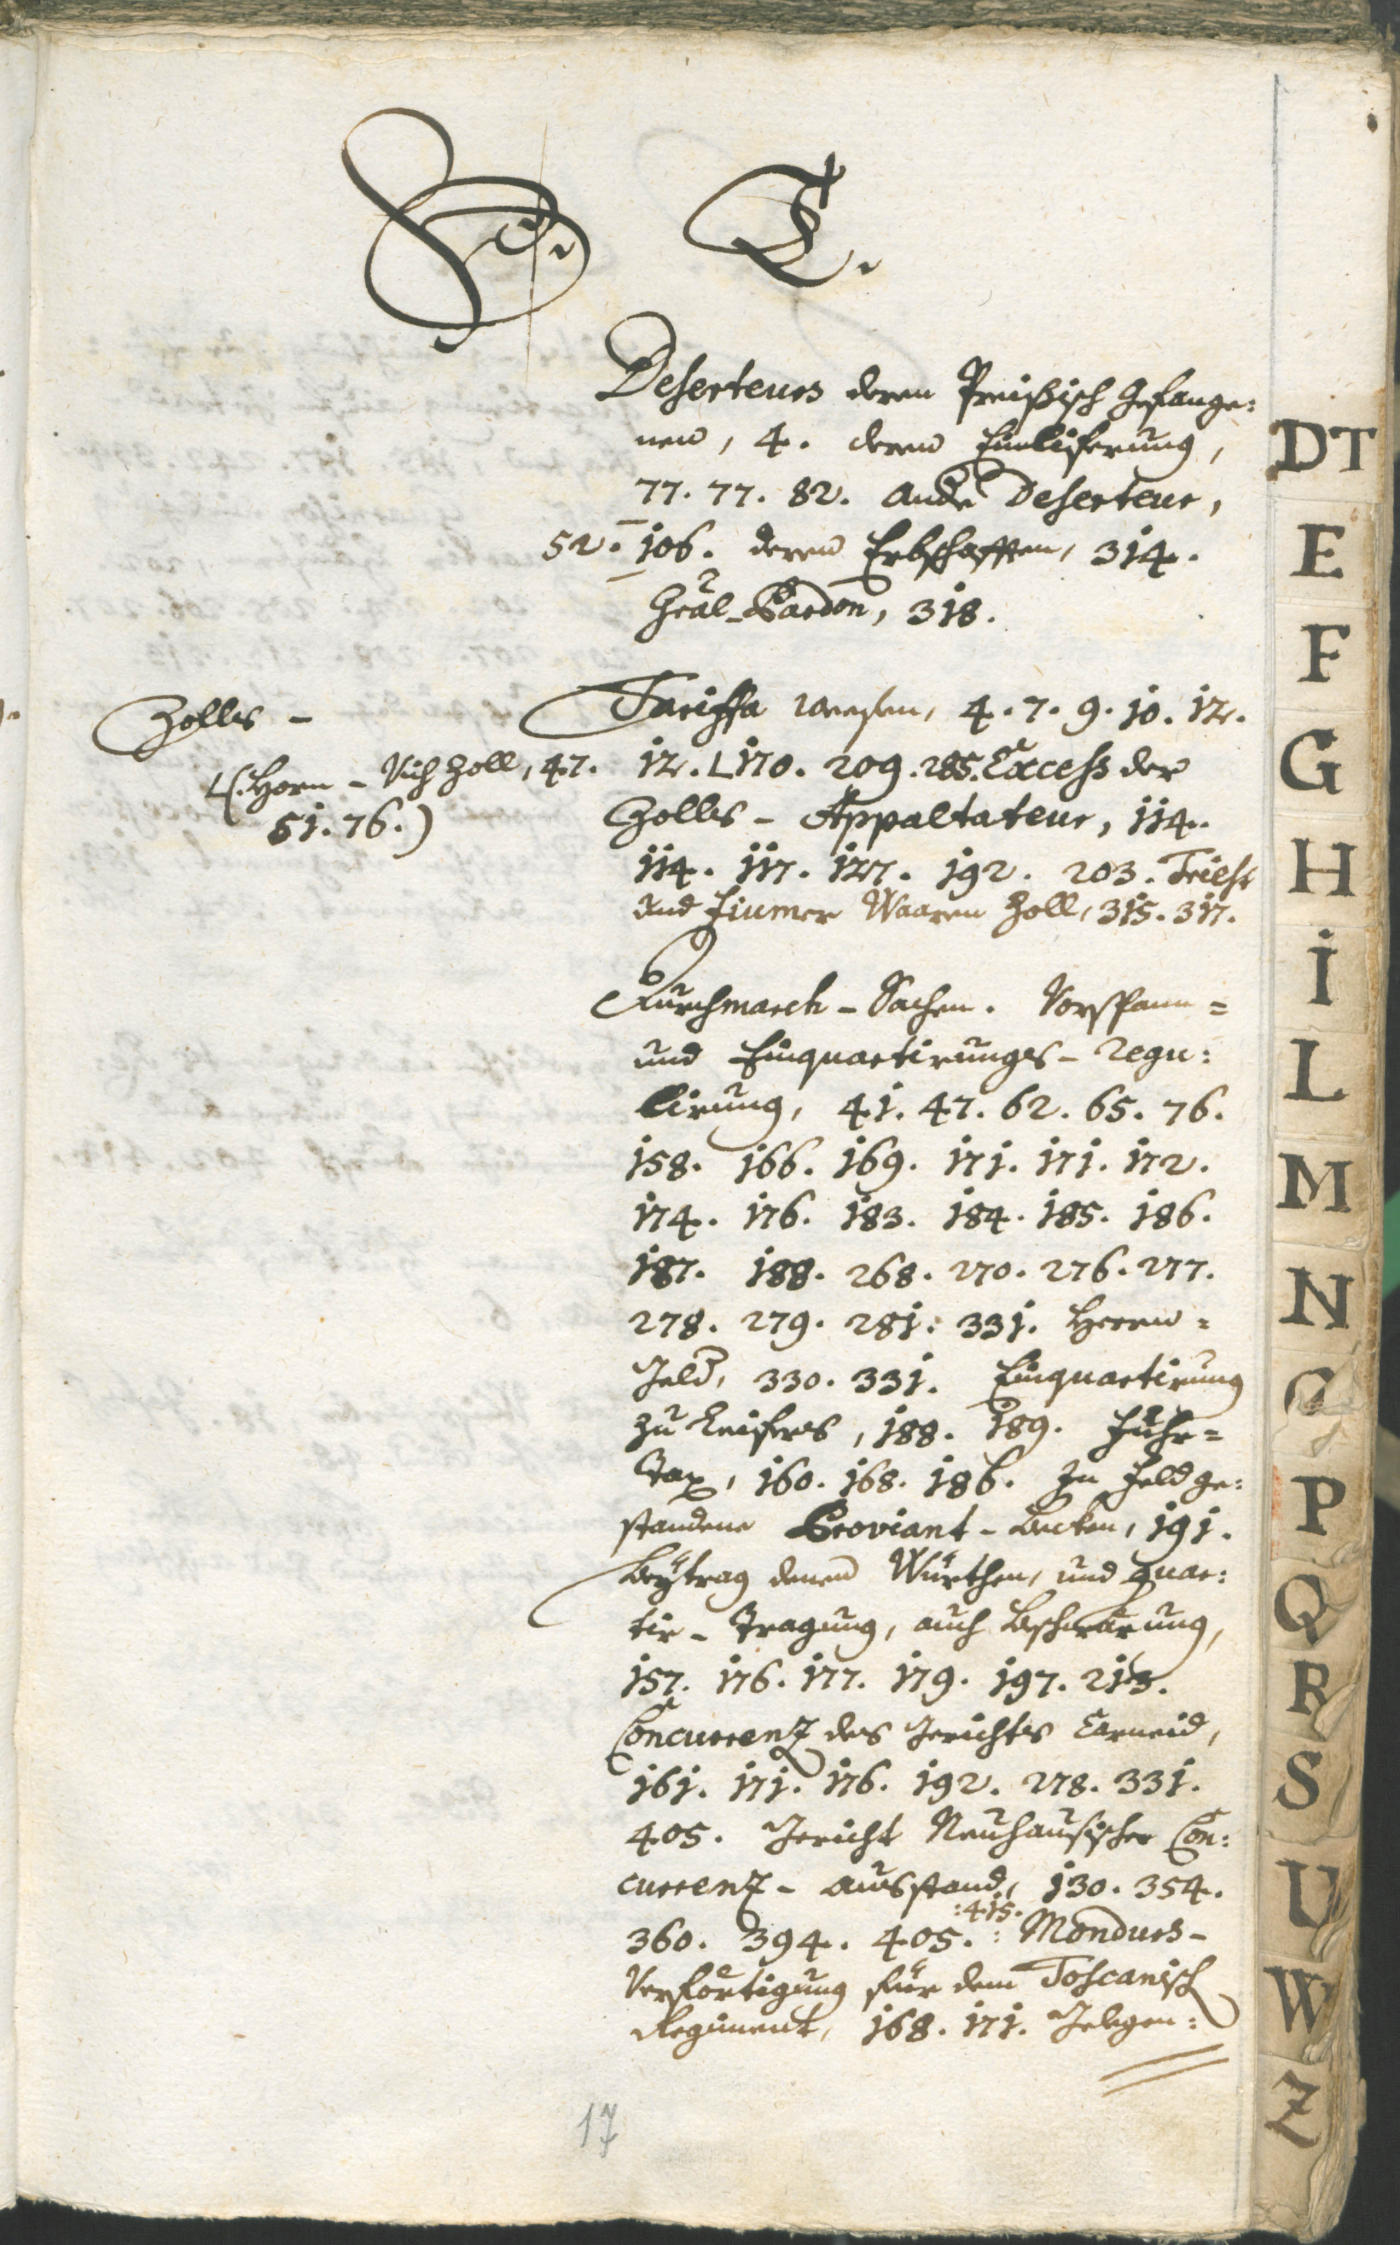 D. T.
Deserteurs deren Preißisch Gefange:
nen, 4. deren Einliferung,
77. 77. 82. Andr Deserteur,
52. 106. deren Erbschafften, 314.
Gral-Pardon, 318.
Zolls -
Tariffa weesen, 4. 7. 9. 10. 12.
(: Horn - Vich Zoll, 47.
51. 76.)
12. 170. 209. 285. Excess der
Zolls - Appaltateur, 114.
114. 117. 127. 192. 203. Triest
und Fiumer Waaren Zoll, 315. 317.
Durchmarch - Sachen. Vorspann =
und Einquartirungs - regu:
lirung, 41. 47. 62. 65. 76.
158. 166. 169. 171. 171. 172.
174. 176. 183. 184. 185. 186.
187. 188. 268. 270. 276. 277.
278. 279. 281. 331. Herrn =
Geld, 330. 331. Einquartirung
zu Leifers, 188. 189. Fuhr =
Tax, 160. 168. 186. In Feld ge:
standene Proviant - Becken, 191.
Beÿtrag denen Würthen, und quar:
tir - Tragung, auch Beschwärung,
157. 176. 177. 179. 197. 213.
Concurrenz des Gerichts Carneid,
161. 171. 176. 192. 278. 331.
405. Gericht Neuhausischer Con:
currenz - Ausstand, 130. 354.
360. 394. 405. :415.: Mondurs -
Verförtigung für dem Toscanisch
Regiment, 168. 171. Gelegen:
17
DT
E
F
G
H
I
L
M
N
O
P
Q
R
S
U
W
Z